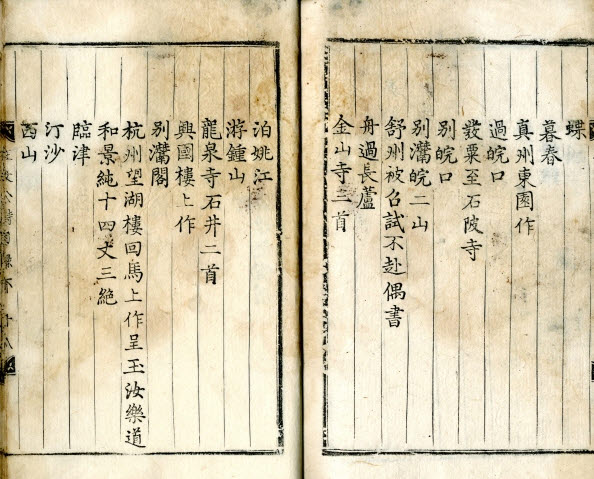 蝶
暮春
真州東園作
過皖口
發粟至石陂寺
別皖口
別灊皖二山
舒州被召試不赴偶書
舟過長蘆
金山寺三首
泊姚江
游鍾山
龍泉寺石井二首
興國樓上作
別灊閣
杭州望湖樓回馬上作呈玉汝樂道
和景純十四丈三絶
臨津
汀沙
西山